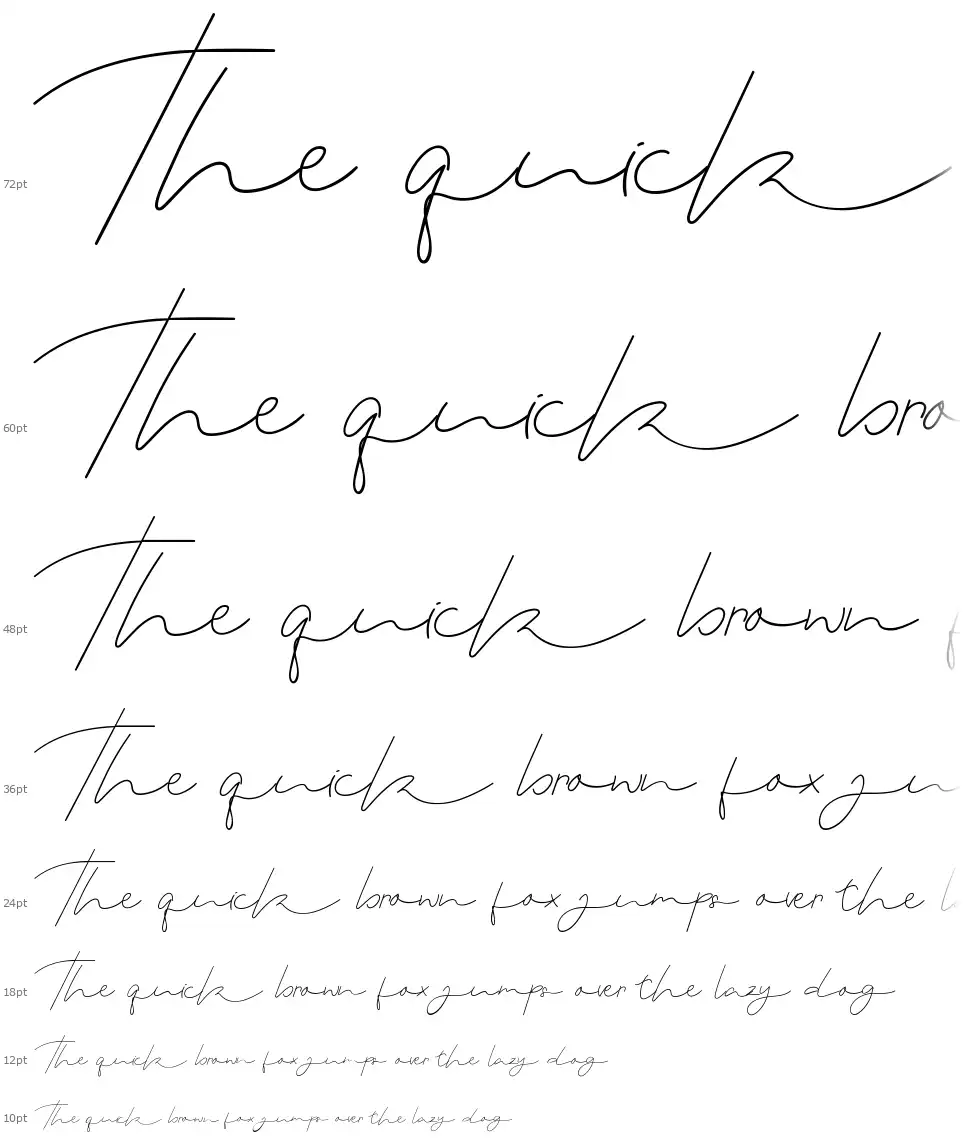 72pt The quick
60pt The quick bro
48pt The quick brown f
36pt The quick brown fox ju
24pt The quick brown fox jumps over the l
18pt The quick brown fox jumps over the lazy dog
12pt The quick brown fox jumps over the lazy dog
10pt The quick brown fox jumps over the lazy dog